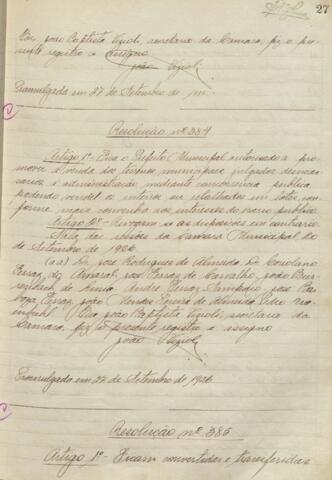 27
Eu, João Baptista Vizioli, secretario da Camara, fiz o pre-
sente registro e assigno
João Vizioli
Promulgada em 27 de Setembro de
Resolução nº 384
Artigo 1º - Fica o Prefeito Municipal autorisado a pro-
mover a venda dos terrenos municipaes julgados desneces-
sarios á administração mediante concorrencia publica,
podendo vendel-os inteiros ou retalhados em lotes, con-
forme mais convenha aos interesses do erario publico.
Artigo 2º - Revogam-se as disposições em contrario.
Sala das sessões da Camara Municipal, 20
de Setembro de 1926
(aa) Dr. José Rodrigues de Almeida, Dr. Coriolano
Ferraz do Amaral, José Ferraz de Carvalho, João
André Ferraz Sampaio, José Bar-
boza Ferraz, João Mendes Pereira de Almeida, Pedro
Eu, João Baptista Vizioli, secretario da
Camara, fiz o presente registro e assigno
João Vizioli
Promulgada em 27 de Setembro de 1926
Resolução nº 385
Artigo 1º - Ficam convertidas e transferidas